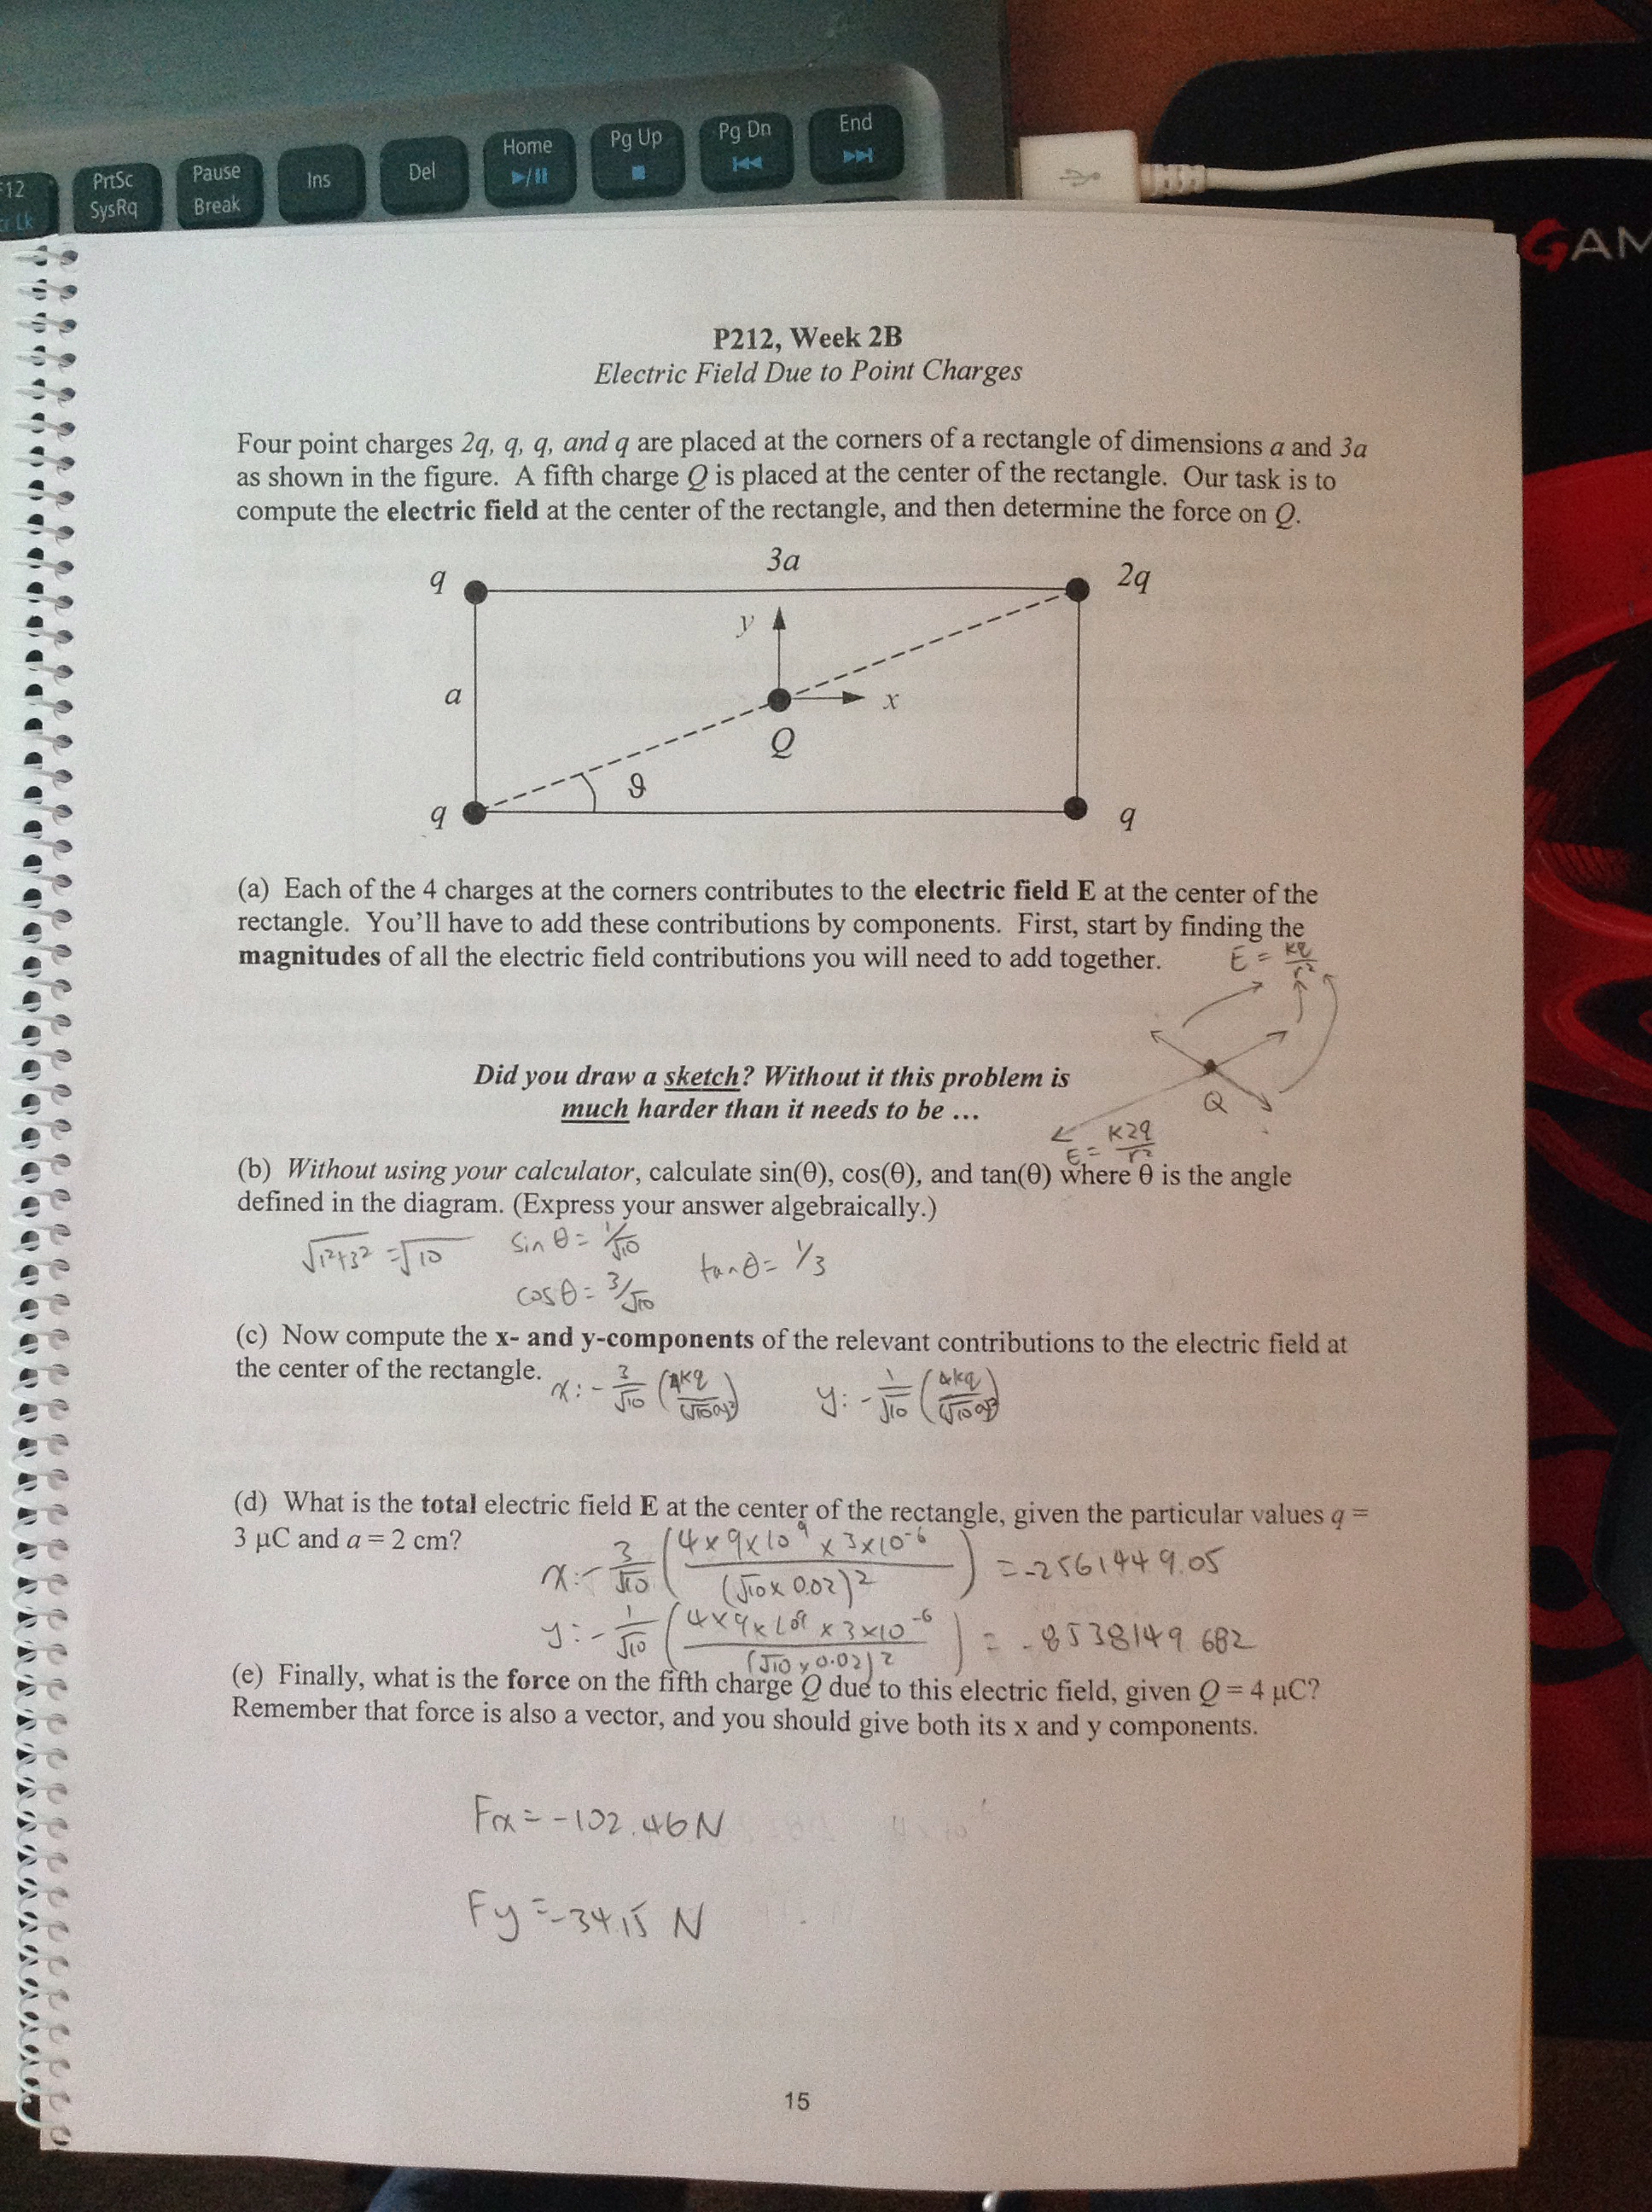 F12 PrtSc Pause Ins Del Home Pg Up Pg Dn End
Lk SysRq Break
GAM
P212, Week 2B
Electric Field Due to Point Charges
Four point charges 2q, q, q, and q are placed at the corners of a rectangle of dimensions a and 3a
as shown in the figure. A fifth charge Q is placed at the center of the rectangle. Our task is to
compute the electric field at the center of the rectangle, and then determine the force on Q.
3a
q 2q
y
a x
Q
ϑ
q q
(a) Each of the 4 charges at the corners contributes to the electric field E at the center of the
rectangle. You'll have to add these contributions by components. First, start by finding the
magnitudes of all the electric field contributions you will need to add together.
E = kq/r²
Did you draw a sketch? Without it this problem is
much harder than it needs to be ...
Q
E = k2q/r²
(b) Without using your calculator, calculate sin(θ), cos(θ), and tan(θ) where θ is the angle
defined in the diagram. (Express your answer algebraically.)
√1²+3² = √10 sin θ = 1/√10 tan θ = 1/3
cos θ = 3/√10
(c) Now compute the x- and y-components of the relevant contributions to the electric field at
the center of the rectangle.
x: - 3/√10 (4kq/(√10a)²) y: - 1/√10 (4kq/(√10a)²)
(d) What is the total electric field E at the center of the rectangle, given the particular values q =
3 μC and a = 2 cm?
x: - 3/√10 (4×9×10⁹×3×10⁻⁶/(√10×0.02)²) = -2561449.05
y: - 1/√10 (4×9×10⁹×3×10⁻⁶/(√10×0.02)²) = -8538149.682
(e) Finally, what is the force on the fifth charge Q due to this electric field, given Q = 4 μC?
Remember that force is also a vector, and you should give both its x and y components.
Fx = -102.46 N
Fy = -34.15 N
15